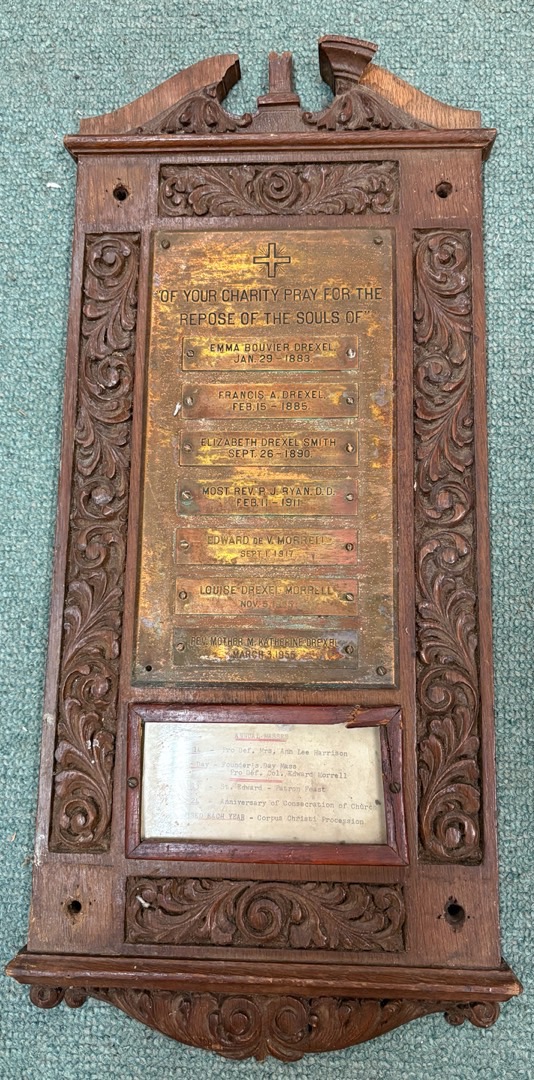 "OF YOUR CHARITY PRAY FOR THE
REPOSE OF THE SOULS OF"
EMMA BOUVIER DREXEL
JAN. 29 - 1883.
FRANCIS A. DREXEL
FEB. 15 - 1885.
ELIZABETH DREXEL SMITH
SEPT. 26 - 1890.
MOST REV. P. J. RYAN, D.D.
FEB. 11 - 1911
EDWARD DE V. MORRELL
SEPT. 1, 1917.
LOUISE DREXEL MORRELL
NOV. 5
REV. MOTHER M. KATHERINE DREXEL
MARCH 3, 1955
ANNUAL MASSES
- Pro Def. Mrs. Ann Lee Harrison
- Founder's Day Mass
Pro Def. Col. Edward Morrell
St. Edward - Patron Feast
Anniversary of Consecration of Church
EACH YEAR - Corpus Christi Procession